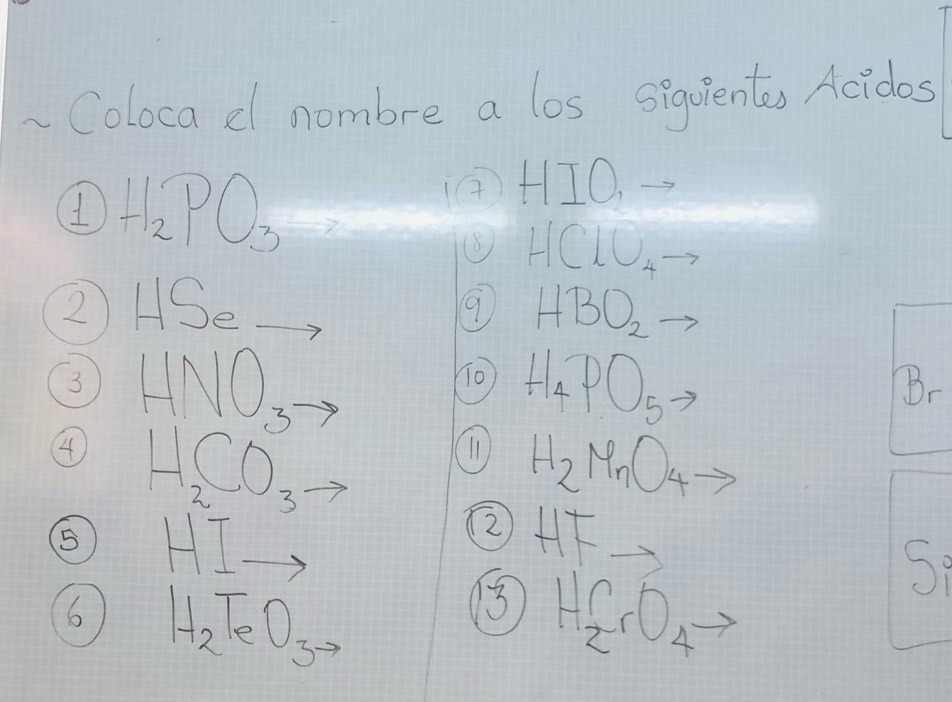 ~ Coloca el nombre a los siguientes Acidos
① H₂PO₃ →
② HSe →
③ HNO₃ →
④ H₂CO₃ →
⑤ HI →
⑥ H₂TeO₃ →
⑦ HIO →
⑧ HClO₄ →
⑨ HBO₂ →
⑩ H₄PO₅ →
⑪ H₂MnO₄ →
⑫ HF →
⑬ H₂CrO₄ →
Br
Si